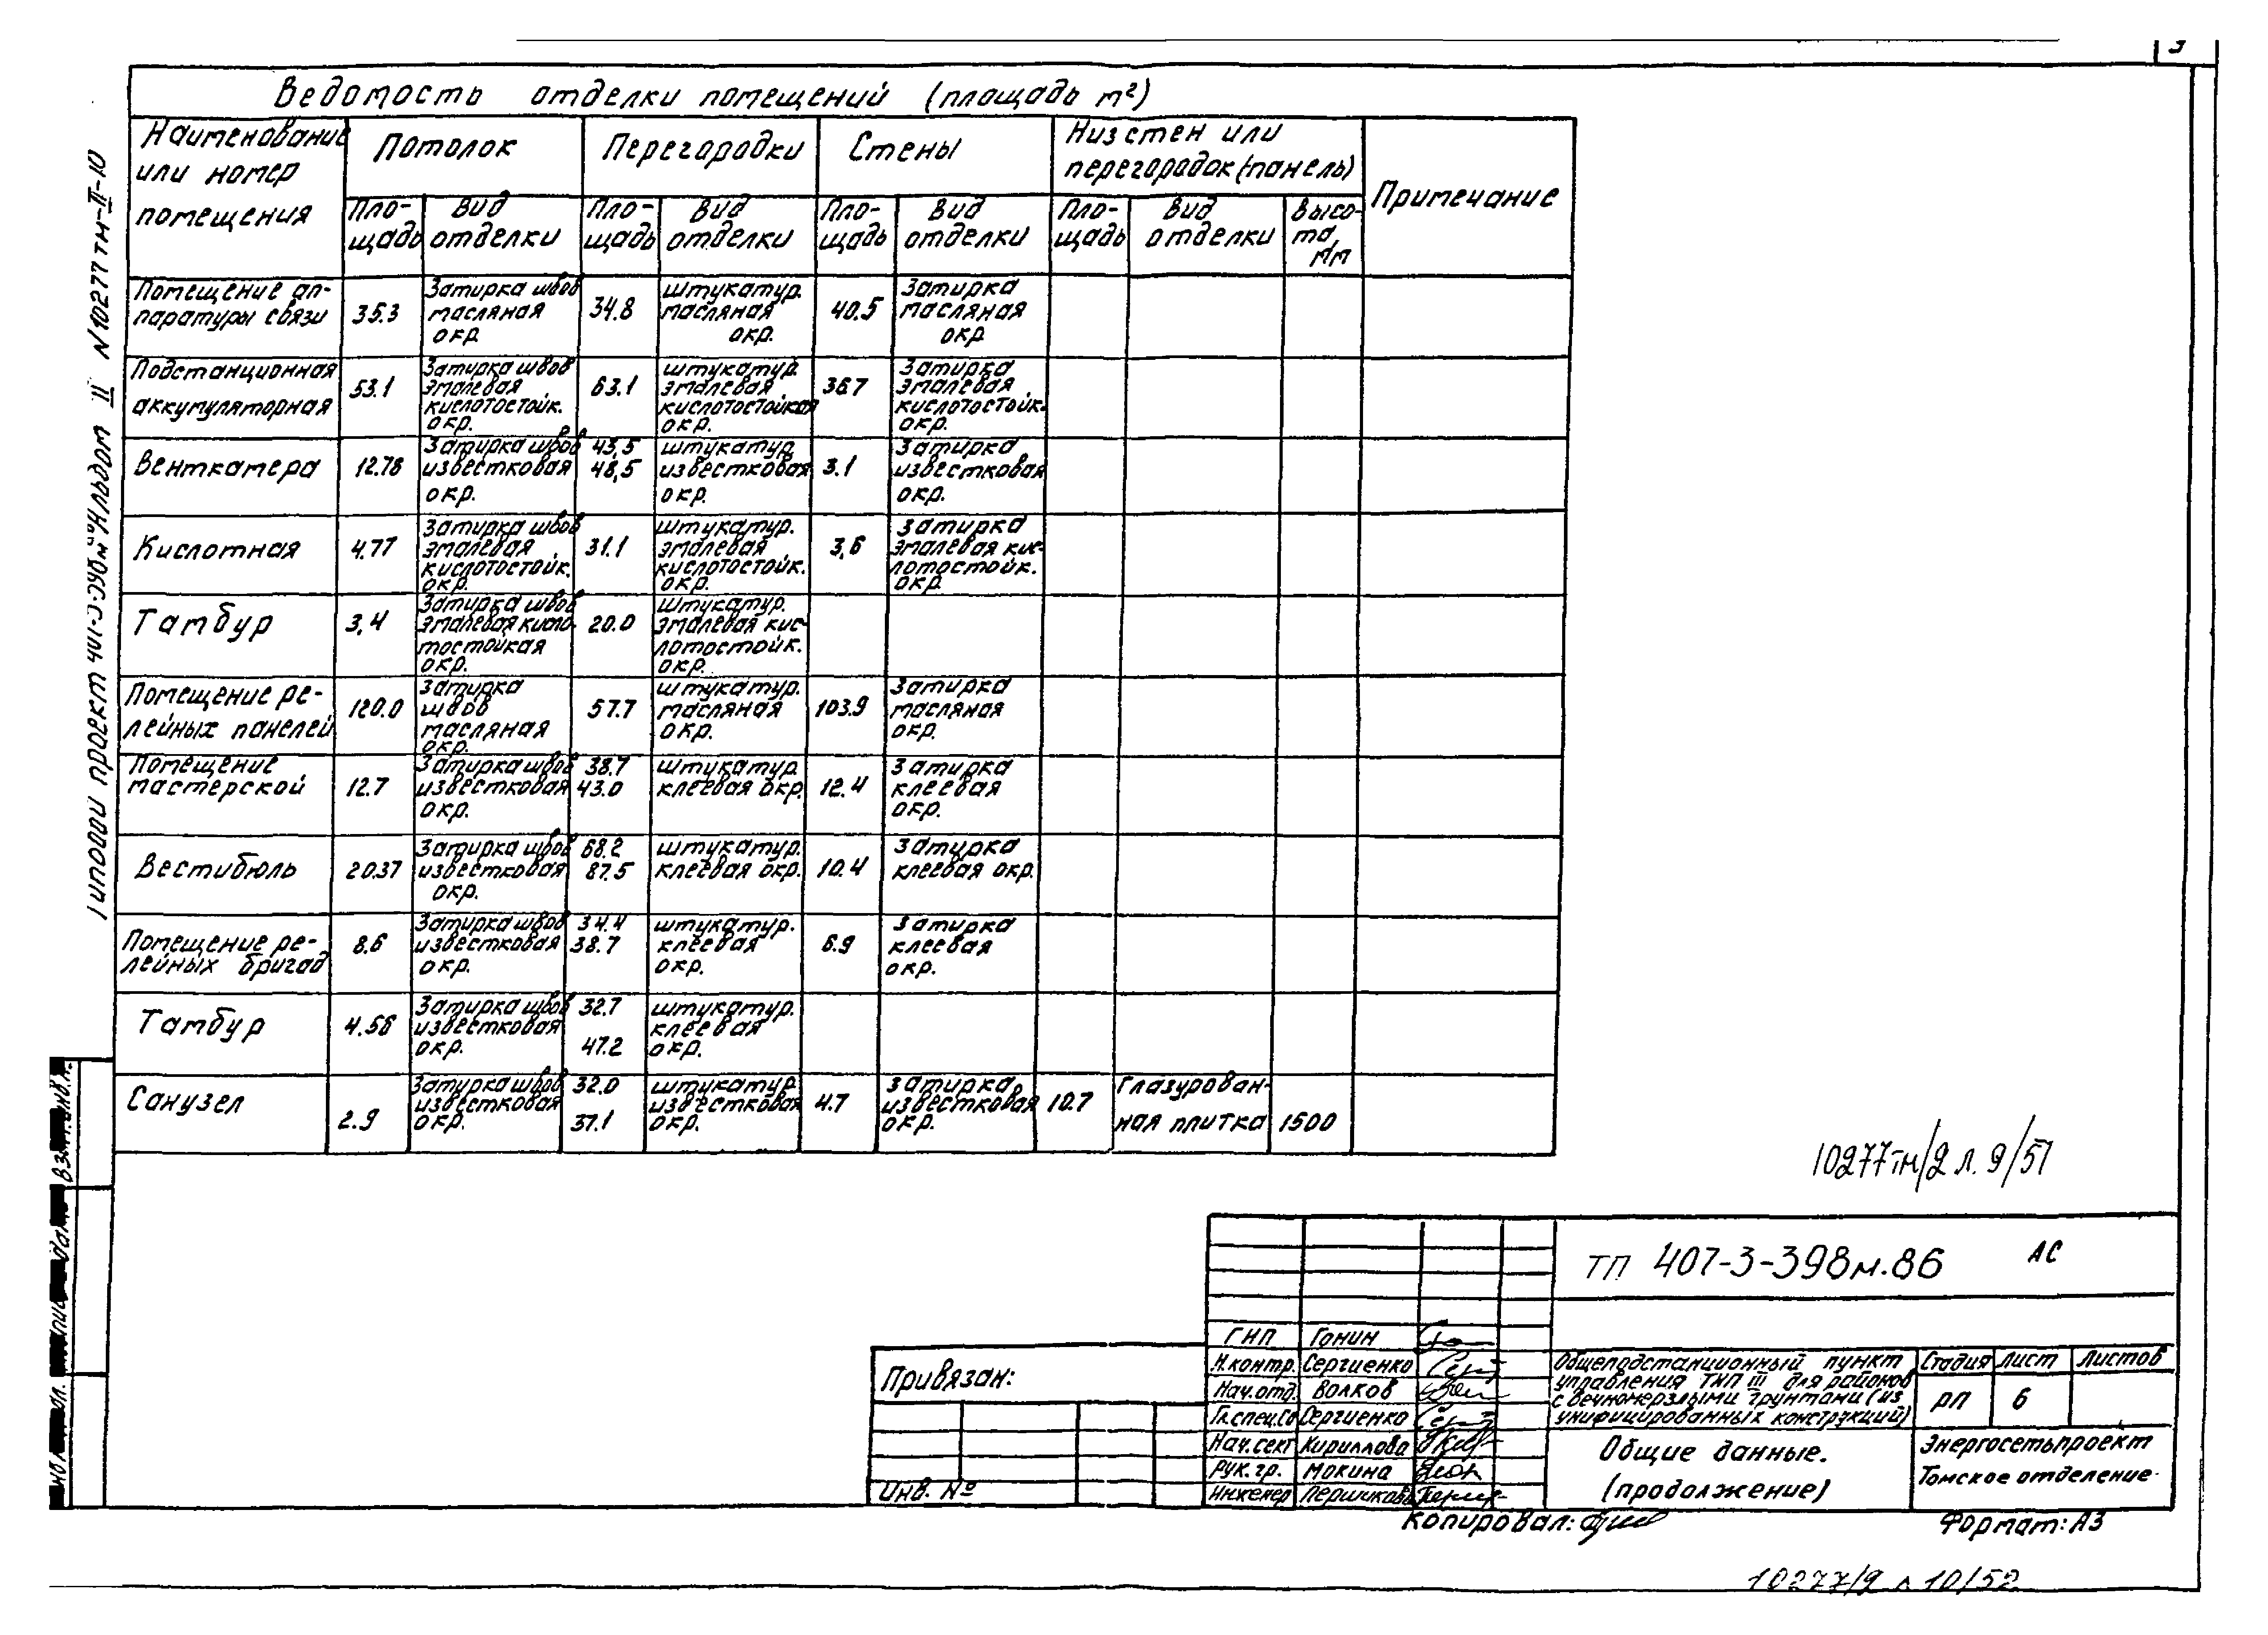 Ведомость отделки помещений (площадь м²)
Наименование или номер помещения
Потолок
Перегородки
Стены
Низ стен или перегородок (панель)
Примечание
Пло-щадь Вид отделки Пло-щадь Вид отделки Пло-щадь Вид отделки Пло-щадь Вид отделки Высо-та, мм
Помещение ап-паратуры связи 35.3 Затирка швов масляная окр. 34.8 штукатур. масляная окр. 40.5 Затирка масляная окр
Подстанционная аккумуляторная 53.1 Затирка швов эмалевая кислотостойк. окр. 63.1 штукатур. эмалевая кислотостойкая окр. 36.7 Затирка эмалевая кислотостойк. окр.
Венткамера 12.78 Затирка швов известковая окр. 43,5 48,5 штукатур. известковая окр. 3.1 Затирка известковая окр.
Кислотная 4.77 Затирка швов эмалевая кислотостойк. окр. 31.1 штукатур. эмалевая кислотостойк. окр. 3,6 Затирка эмалевая кис-лотостойк. окр.
Тамбур 3,4 Затирка швов эмалевая кисло-тостойкая окр. 20.0 Штукатур. эмалевая кис-лотостойк. окр.
Помещение ре-лейных панелей 120.0 Затирка швов масляная окр. 57.7 штукатур. масляная окр. 103.9 Затирка масляная окр.
Помещение мастерской 12.7 Затирка швов известковая окр. 38.7 43.0 штукатур. клеевая окр. 12.4 Затирка клеевая окр.
Вестибюль 20.37 Затирка швов известковая окр. 68.2 87.5 штукатур. клеевая окр. 10.4 Затирка клеевая окр.
Помещение ре-лейных бригад 8.6 Затирка швов известковая окр. 34.4 38.7 штукатур. клеевая окр. 6.9 Затирка клеевая окр.
Тамбур 4.56 Затирка швов известковая окр. 32.7 47.2 штукатур. клеевая окр.
Санузел 2.9 Затирка швов известковая окр. 32.0 37.1 штукатур. известковая окр. 4.7 затирка известковая окр. 10.7 Глазурован-ная плитка 1500
Типовой проект Альбом II N10277тм-II-10
10277тм/2 л. 9/51
ТП 407-3-398м.86 АС
ГИП Гонин
Н.контр. Сергиенко
Нач.отд. Волков
Гл.спец.Со Сергиенко
Нач.сект Кириллова
Рук.гр. Мокина
Инженер
Общеподстанционный пункт
управления ТИП III для районов
с вечномерзлыми грунтами (из
унифицированных конструкций)
Стадия Лист Листов
РП 6
Общие данные.
(продолжение)
Энергосетьпроект
Томское отделение
Привязан:
Инв. №
Копировал:
Формат: А3
10277/2 л 10/52